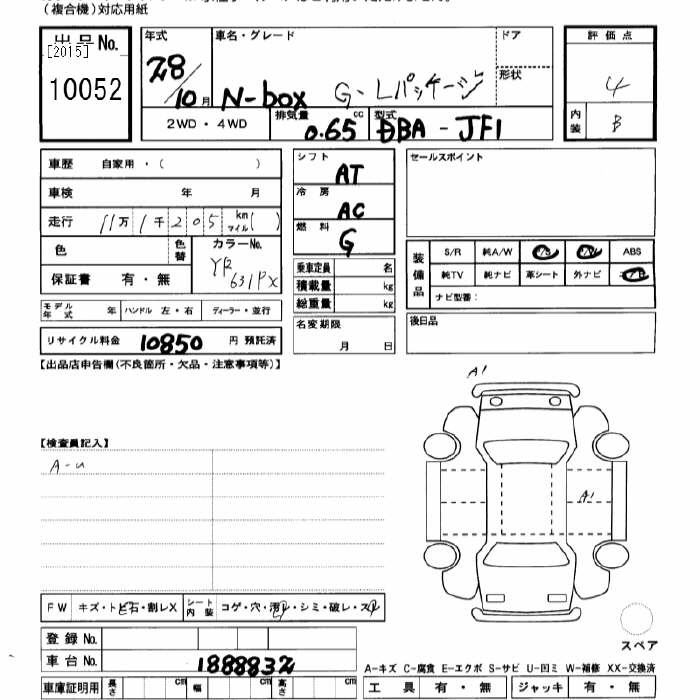 (複合機)対応用紙
出品No. 年式 車名・グレード ドア 評価点
[2015]
10052 28/10月 N-box G-Lパッケージ 形状 4
2WD・4WD 排気量 0.65 cc 型式 DBA-JF1 内装 B
車歴 自家用・( ) シフト AT セールスポイント
車検 年 月 冷房 AC
走行 11万1千205 km マイル( ) 燃料 G
色 色替 カラーNo. YR631PX
保証書 有・無
装備品 S/R 純A/W P/S P/W ABS
純TV 純ナビ 革シート 外ナビ
ナビ型番:
乗車定員 名
積載量 kg
総重量 kg
モデル年式 年 ハンドル 左・右 ディーラー・並行
名変期限 月 日 後日品
リサイクル料金 10850 円 預託済
【出品店申告欄(不良箇所・欠品・注意事項等)】
A1
【検査員記入】
A-u
A1
FW キズ・トビ石・割レX シート内装 コゲ・穴・汚レ・シミ・破レ・スレ
スペア
登録No.
車台No. 1888832
A-キズ C-腐食 E-エクボ S-サビ U-凹ミ W-補修 XX-交換済
車庫証明用 長さ cm 幅 cm 高さ cm 工具 有・無 ジャッキ 有・無